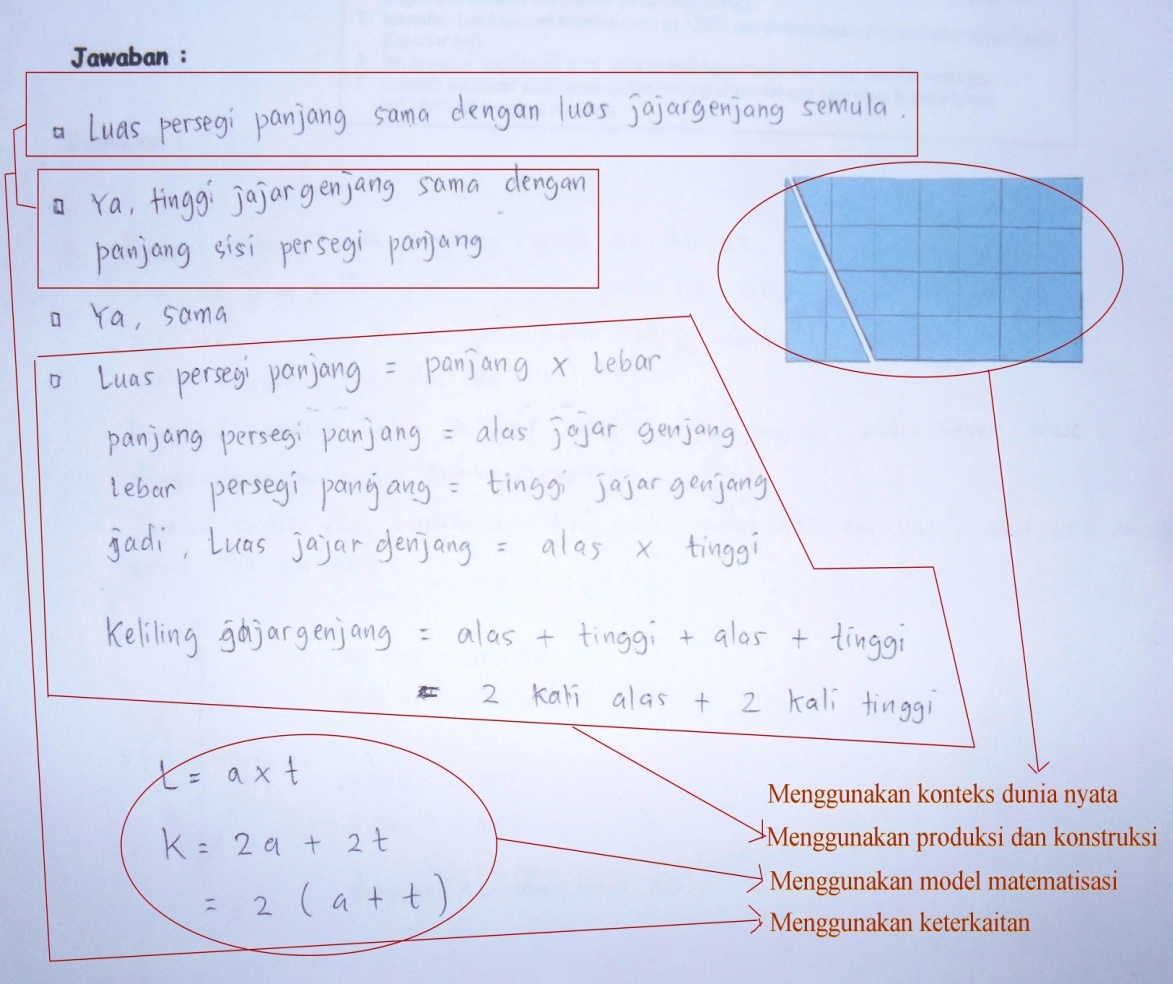 Jawaban :
Luas persegi panjang sama dengan luas jajargenjang semula.
Ya, tinggi jajargenjang sama dengan
panjang sisi persegi panjang
Ya, sama
Luas persegi panjang = panjang x lebar
panjang persegi panjang = alas jajar genjang
lebar persegi pangjang = tinggi jajar genjang
jadi, Luas jajar genjang = alas x tinggi
Keliling jajargenjang = alas + tinggi + alas + tinggi
= 2 kali alas + 2 kali tinggi
L = a x t
K = 2a + 2t
= 2 (a + t)
Menggunakan konteks dunia nyata
Menggunakan produksi dan konstruksi
Menggunakan model matematisasi
Menggunakan keterkaitan